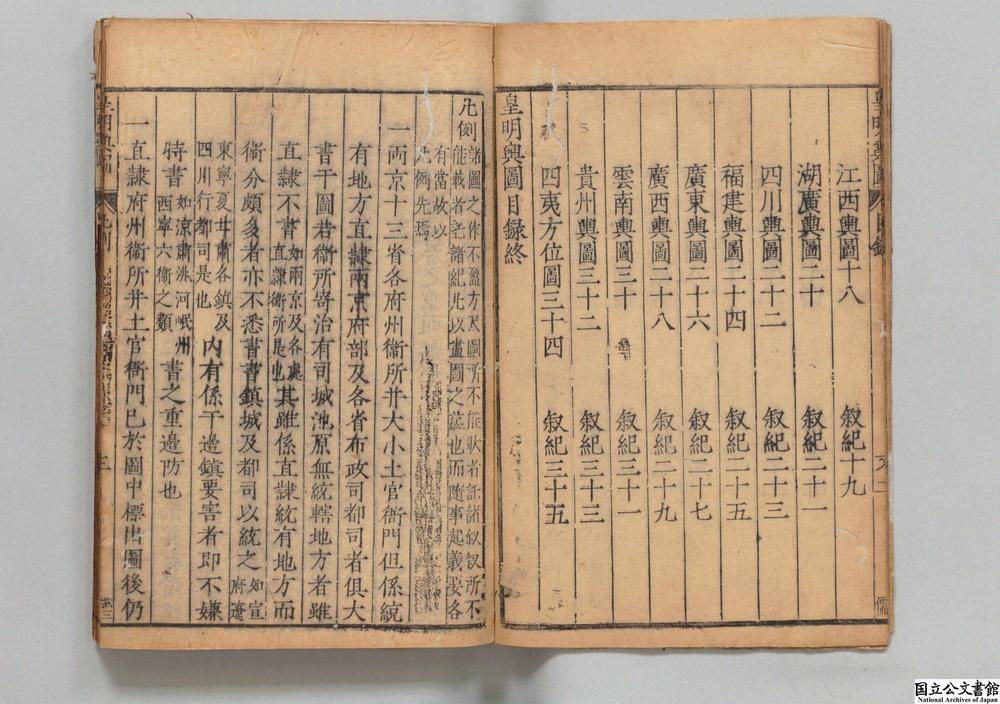 江西輿圖十八 叙紀十九
湖廣輿圖二十 叙紀二十一
四川輿圖二十二 叙紀二十三
福建輿圖二十四 叙紀二十五
廣東輿圖二十六 叙紀二十七
廣西輿圖二十八 叙紀二十九
雲南輿圖三十 叙紀三十一
貴州輿圖三十二 叙紀三十三
四夷方位圖三十四 叙紀三十五
皇明輿圖目録終
凡例 諸圖之作不盈方尺圖所不能狀者託諸叙叙所不
能載者託諸紀凡以盡圖之蘊也而隨事起義要各
有當故以
凡例先焉
一兩京十三省各府州衞所并大小土官衙門但係統
有地方直隷兩京府部及各省布政司都司者俱大
書于圖若衞所寄治有司城池原無統轄地方者雖
直隷不書 如兩京及各處
直隷衞所是也 其雖係直隷統有地方而
衞分頗多者亦不悉書書鎮城及都司以統之 如宣
府遼
東寧夏甘肅各鎮及
四川行都司是也 内有係干邊鎮要害者即不嫌
特書 如涼肅洮河岷州
西寧六衞之類 書之重邊防也
一直隷府州衞所并土官衙門已於圖中標出圖後仍
国立公文書館
National Archives of Japan